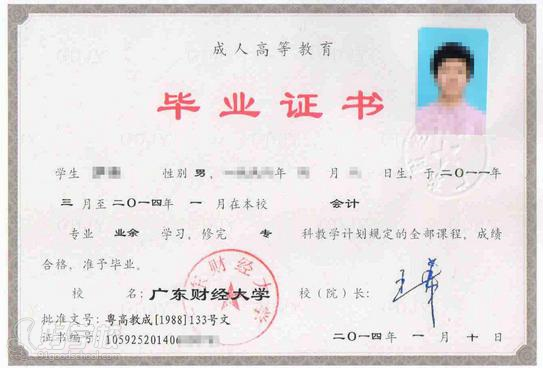 成人高等教育
毕业证书
学生 性别 男, 一九 年 月 日生,于二〇一一年
三 月至二〇一四年 一 月在本校 会计
专业 业余 学习,修完 专 科教学计划规定的全部课程,成绩
合格,准予毕业。
校 名:广东财经大学 校(院)长:
批准文号:粤高教成[1988]133号文
证书编号:105925201406
二〇一四年 一 月 十 日
广东财经大学